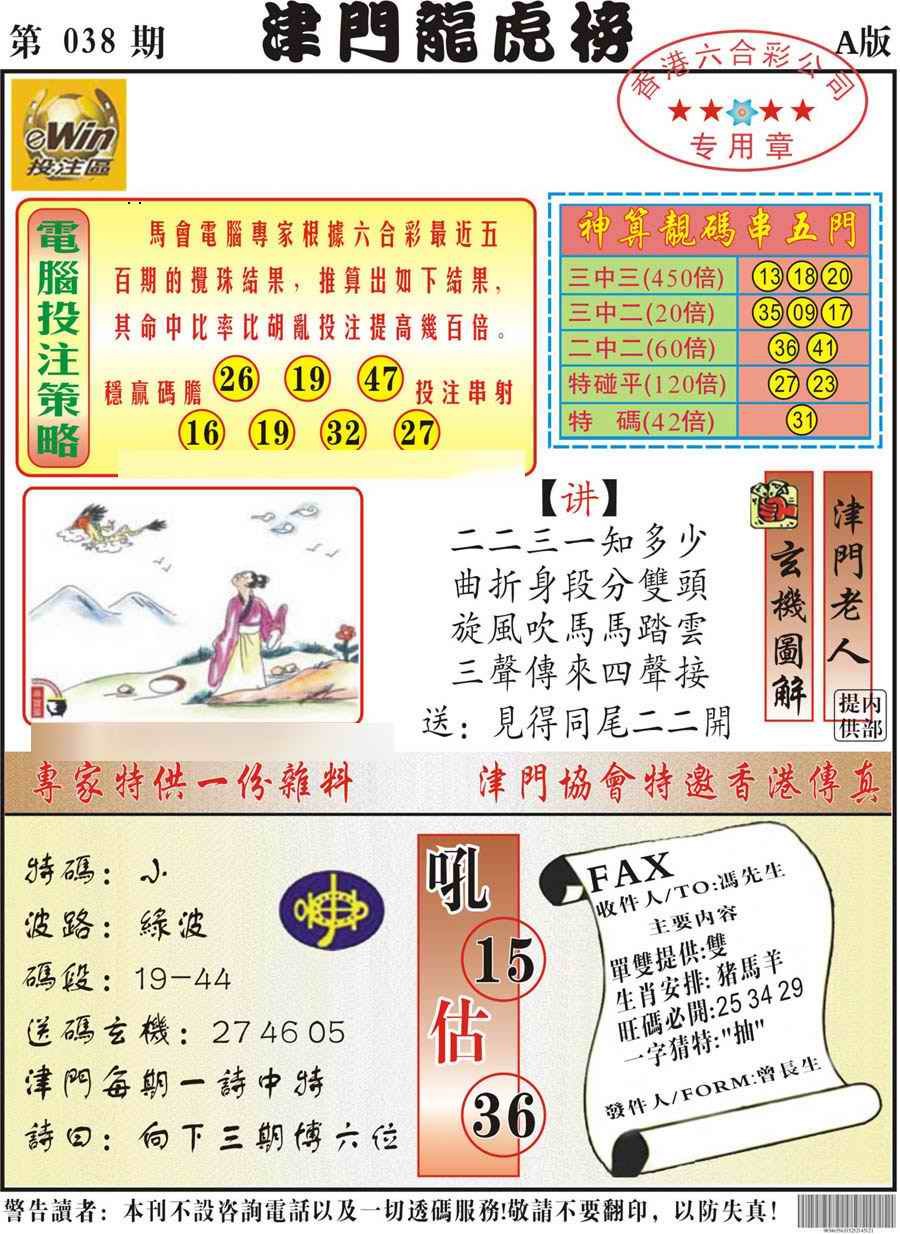 第 038 期
津門龍虎榜
A版
香港六合彩公司
专用章
eWin
投注區
電腦投注策略
馬會電腦專家根據六合彩最近五
百期的攪珠結果，推算出如下結果，
其命中比率比胡亂投注提高幾百倍。
穩贏碼膽 26 19 47 投注串射
16 19 32 27
神算靚碼串五門
三中三(450倍) 13 18 20
三中二(20倍) 35 09 17
二中二(60倍) 36 41
特碰平(120倍) 27 23
特 碼(42倍) 31
【讲】
二二三一知多少
曲折身段分雙頭
旋風吹馬馬踏雲
三聲傳來四聲接
送：見得同尾二二開
玄機圖解
津門老人
内部提供
專家特供一份雜料
津門協會特邀香港傳真
特碼：小
波路：綠波
碼段：19-44
送碼玄機：27 46 05
津門每期一詩中特
詩曰：向下三期博六位
吼
15
估
36
FAX
收件人/TO:馮先生
主要内容
單雙提供:雙
生肖安排:猪馬羊
旺碼必開:25 34 29
一字猜特:"抽"
發件人/FORM:曾長生
警告讀者：本刊不設咨詢電話以及一切透碼服務!敬請不要翻印，以防失真！